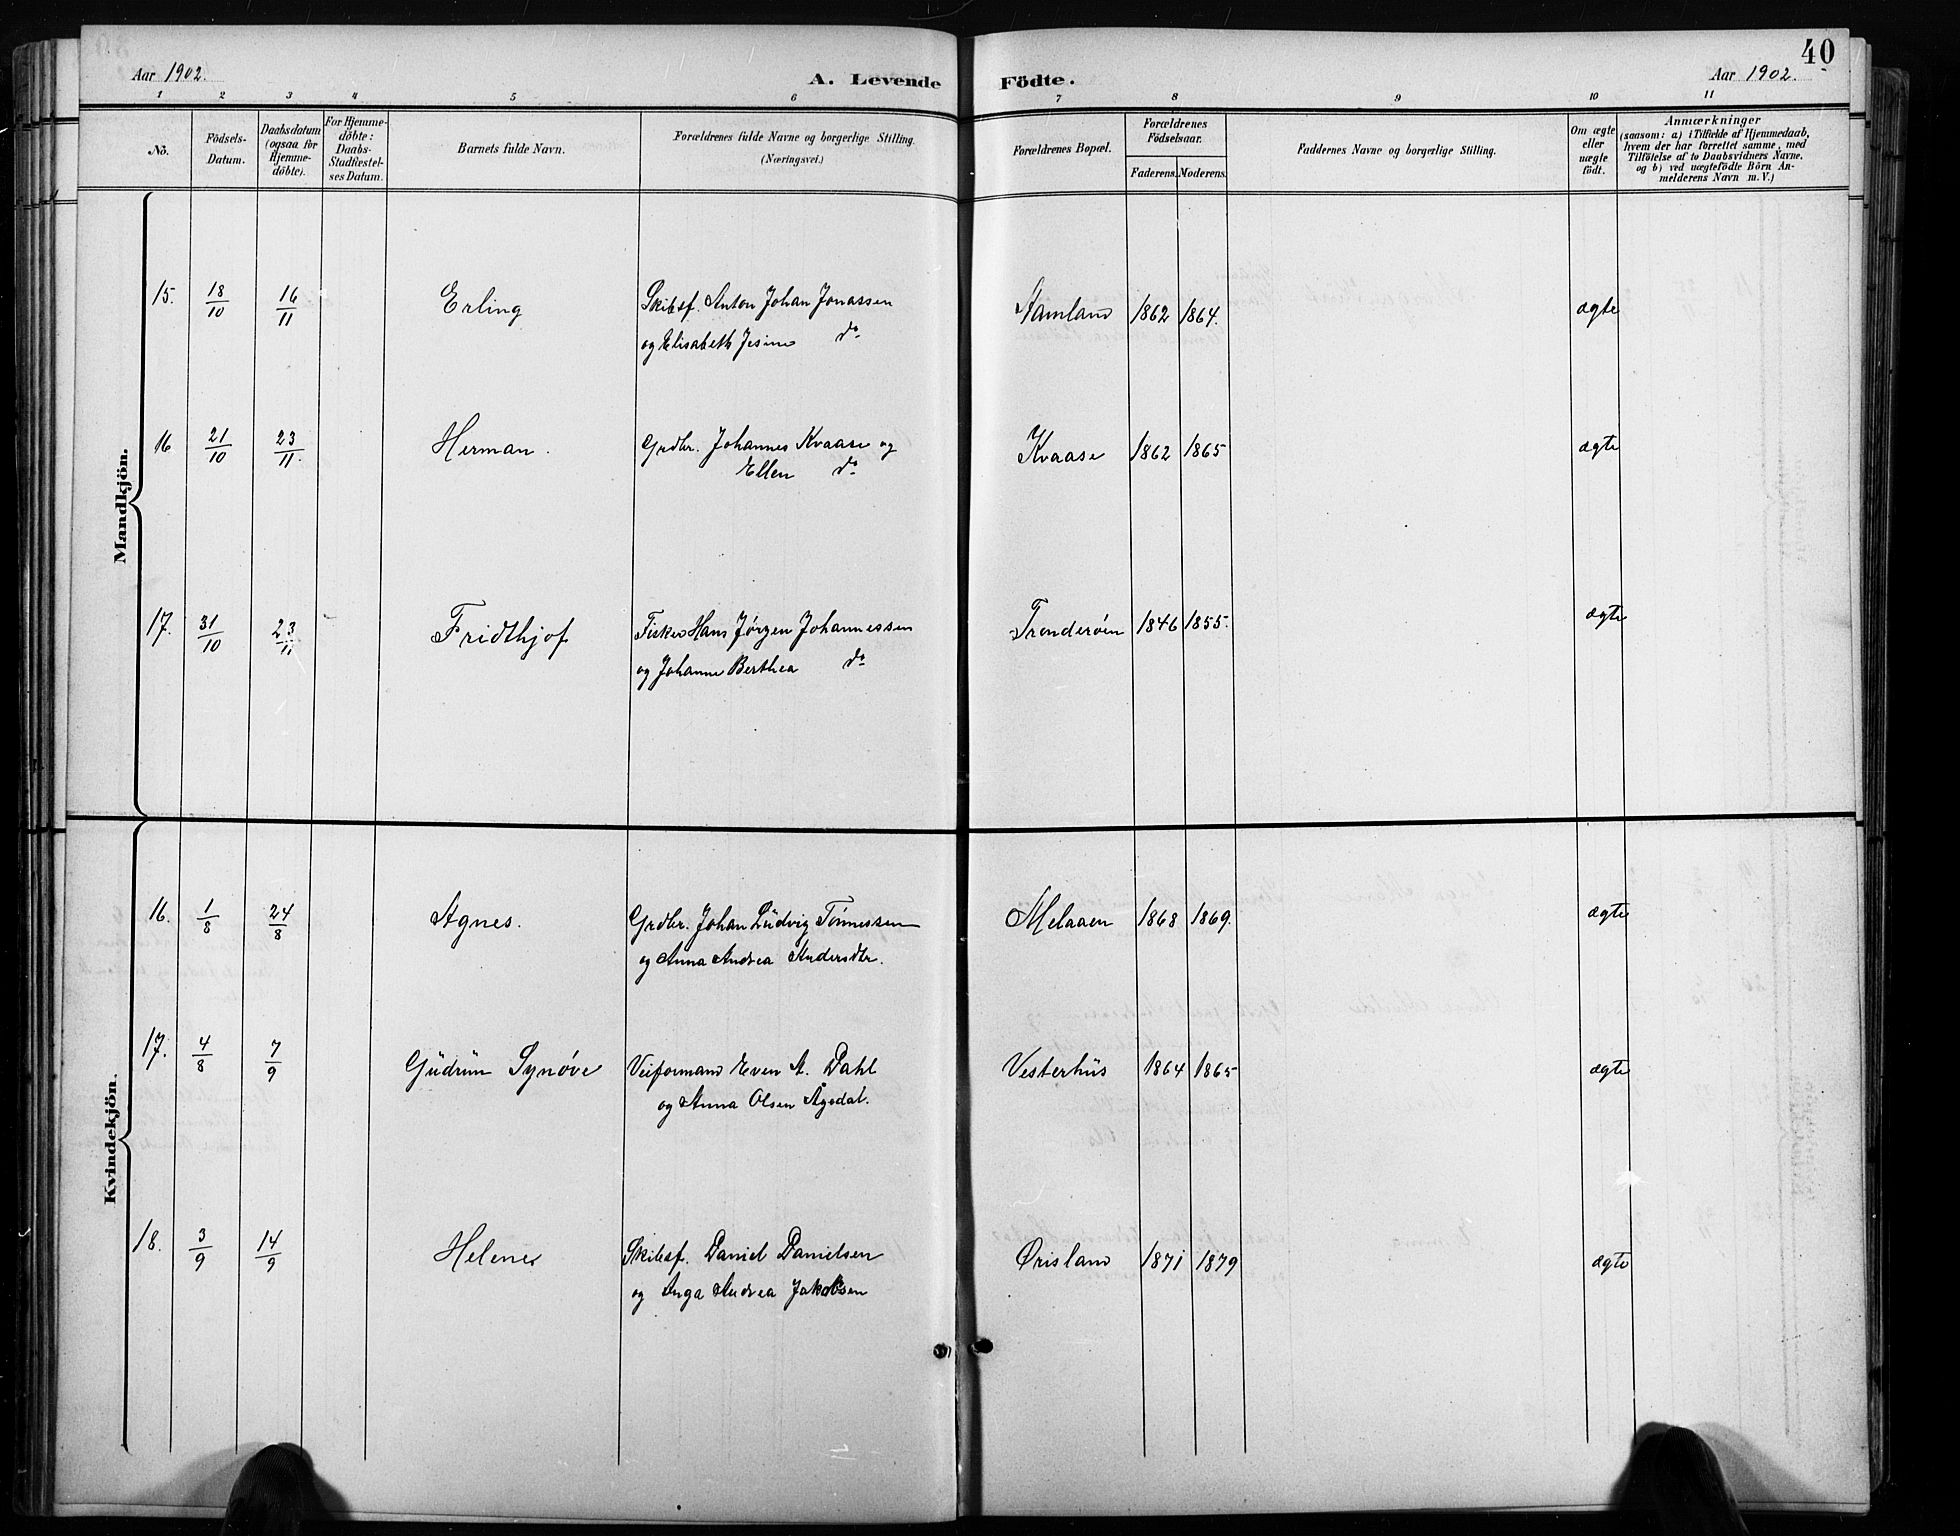 40
Aar 1902. A. Levende Födte. Aar 1902.
1 2 3 4 5 6 7 8 9 10 11
No.
Födsels-
Datum.
Daabsdatum
(ogsaa for
Hjemme-
döbte).
For Hjemme-
döbte:
Daabs-
Stadfæstel-
ses Datum.
Barnets fulde Navn.
Forældrenes fulde Navne og borgerlige Stilling.
(Næringsvei.)
Forældrenes Bopæl.
Forældrenes
Födselsaar.
Faderens. Moderens.
Faddernes Navne og borgerlige Stilling.
Om ægte
eller
uægte
födt.
Anmærkninger
(saasom: a) i Tilfælde af Hjemmedaab,
hvem der har forrettet samme, med
Tilföielse af to Daabsvidners Navne.
og b) ved uægtefödte Börn An-
melderens Navn m. V.)
Mandkjön.
15. 18/10 16/11 Erling Skibsf. Anton Johan Jonassen Stamland 1862 1864. ægte
og Elisabeth Jesine do
16 21/10 23/11. Herman. Grdbr. Johannes Kvaase og Kvaase 1862 1865 ægte
Ellen do
17. 31/10 23/11 Fridthjof Fisker Hans Jørgen Johannessen Trenderøen 1846 1855. ægte
og Johanne Berthea do
Kvindekjön.
16. 1/8 24/8 Agnes. Grdbr. Johan Ludvig Tønnessen Melaaen 1868 1869. ægte
og Anna Andrea Andersdtr.
17. 4/8 7/9 Gudrun Synøve Veiformand Even A. Dahl Vesterhus 1864 1865 ægte
og Anna Olsen Ågedal.
18. 3/9 14/9 Helene Skibsf. Daniel Danielsen Ørisland 1871 1879 ægte
og Inga Andrea Jakobsen